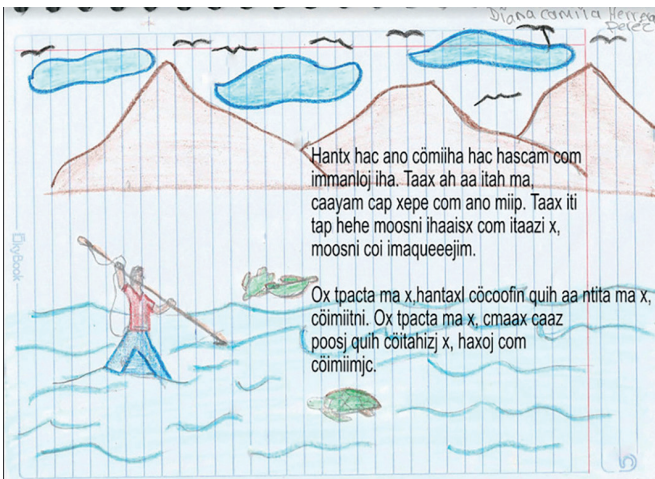 Diana camila Herrera
Perez
Hantx hac ano cömiiha hac hascam com
immanloj iha. Taax ah aa itah ma,
caayam cap xepe com ano miip. Taax iti
tap hehe moosni ihaaisx com itaazi x,
moosni coi imaqueeejim.
Ox tpacta ma x,hantaxl cöcoofin quih aa ntita ma x,
cöimiitni. Ox tpacta ma x, cmaax caaz
poosj quih cöitahizj x, haxoj com
cöimiimjc.
SkyBook
5